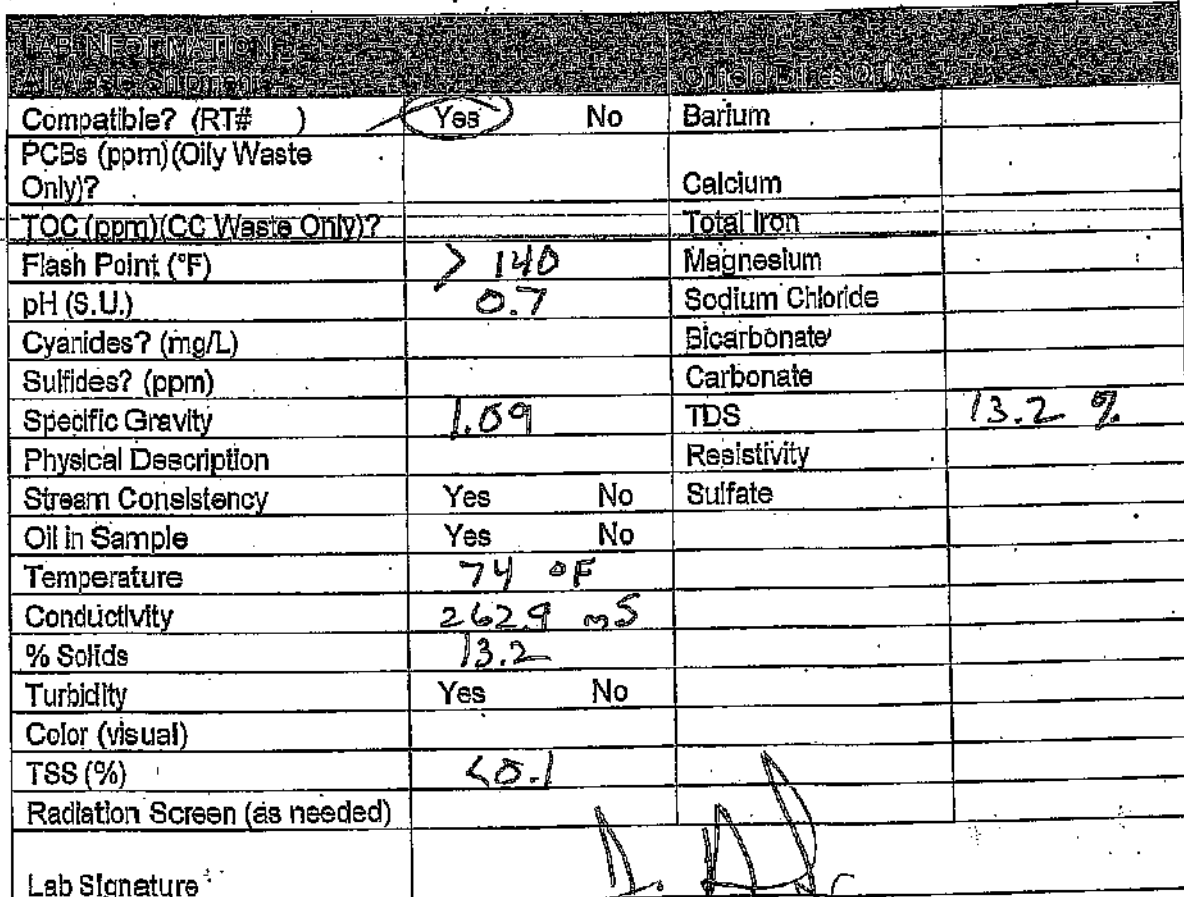 LAB INFORMATION
All Waste Shipment Oilfield Brines Only
Compatible? (RT# ) Yes No Barium
PCBs (ppm)(Oily Waste
Only)? Calcium
TOC (ppm)(CC Waste Only)? Total Iron
Flash Point (°F) > 140 Magnesium
pH (S.U.) 0.7 Sodium Chloride
Cyanides? (mg/L) Bicarbonate
Sulfides? (ppm) Carbonate
Specific Gravity 1.09 TDS 13.2 %
Physical Description Resistivity
Stream Consistency Yes No Sulfate
Oil in Sample Yes No
Temperature 74 °F
Conductivity 262.9 mS
% Solids 13.2
Turbidity Yes No
Color (visual)
TSS (%) <0.1
Radiation Screen (as needed)
Lab Signature